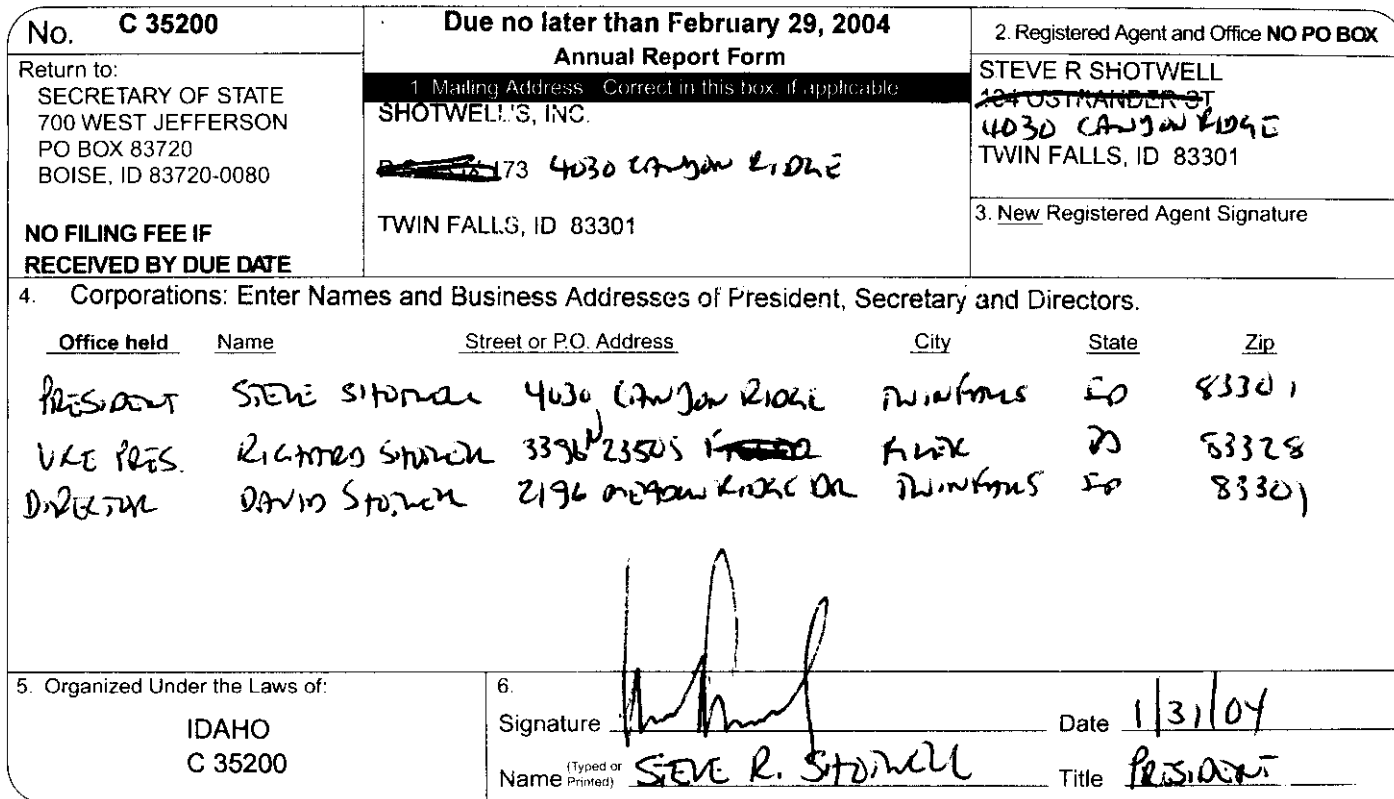 No. C 35200
Return to:
SECRETARY OF STATE
700 WEST JEFFERSON
PO BOX 83720
BOISE, ID 83720-0080
NO FILING FEE IF
RECEIVED BY DUE DATE
Due no later than February 29, 2004
Annual Report Form
1 Mailing Address Correct in this box, if applicable
SHOTWELL'S, INC.
173 4030 CANYON RIDGE
TWIN FALLS, ID 83301
2. Registered Agent and Office NO PO BOX
STEVE R SHOTWELL
134 OSTRANDER ST
4030 CANYON RIDGE
TWIN FALLS, ID 83301
3. New Registered Agent Signature
4. Corporations: Enter Names and Business Addresses of President, Secretary and Directors.
Office held Name Street or P.O. Address City State Zip
PRESIDENT STEVE SHOTWELL 4030 CANYON RIDGE TWIN FALLS ID 83301
VICE PRES. RICHARD SHOTWELL 3396 N 2350 S FILER ID 83328
DIRECTOR DAVID SHOTWELL 2196 MEADOW RIDGE DR TWIN FALLS ID 83301
5. Organized Under the Laws of:
IDAHO
C 35200
6.
Signature Date 1/31/04
Name (Typed or Printed) STEVE R. SHOTWELL Title PRESIDENT